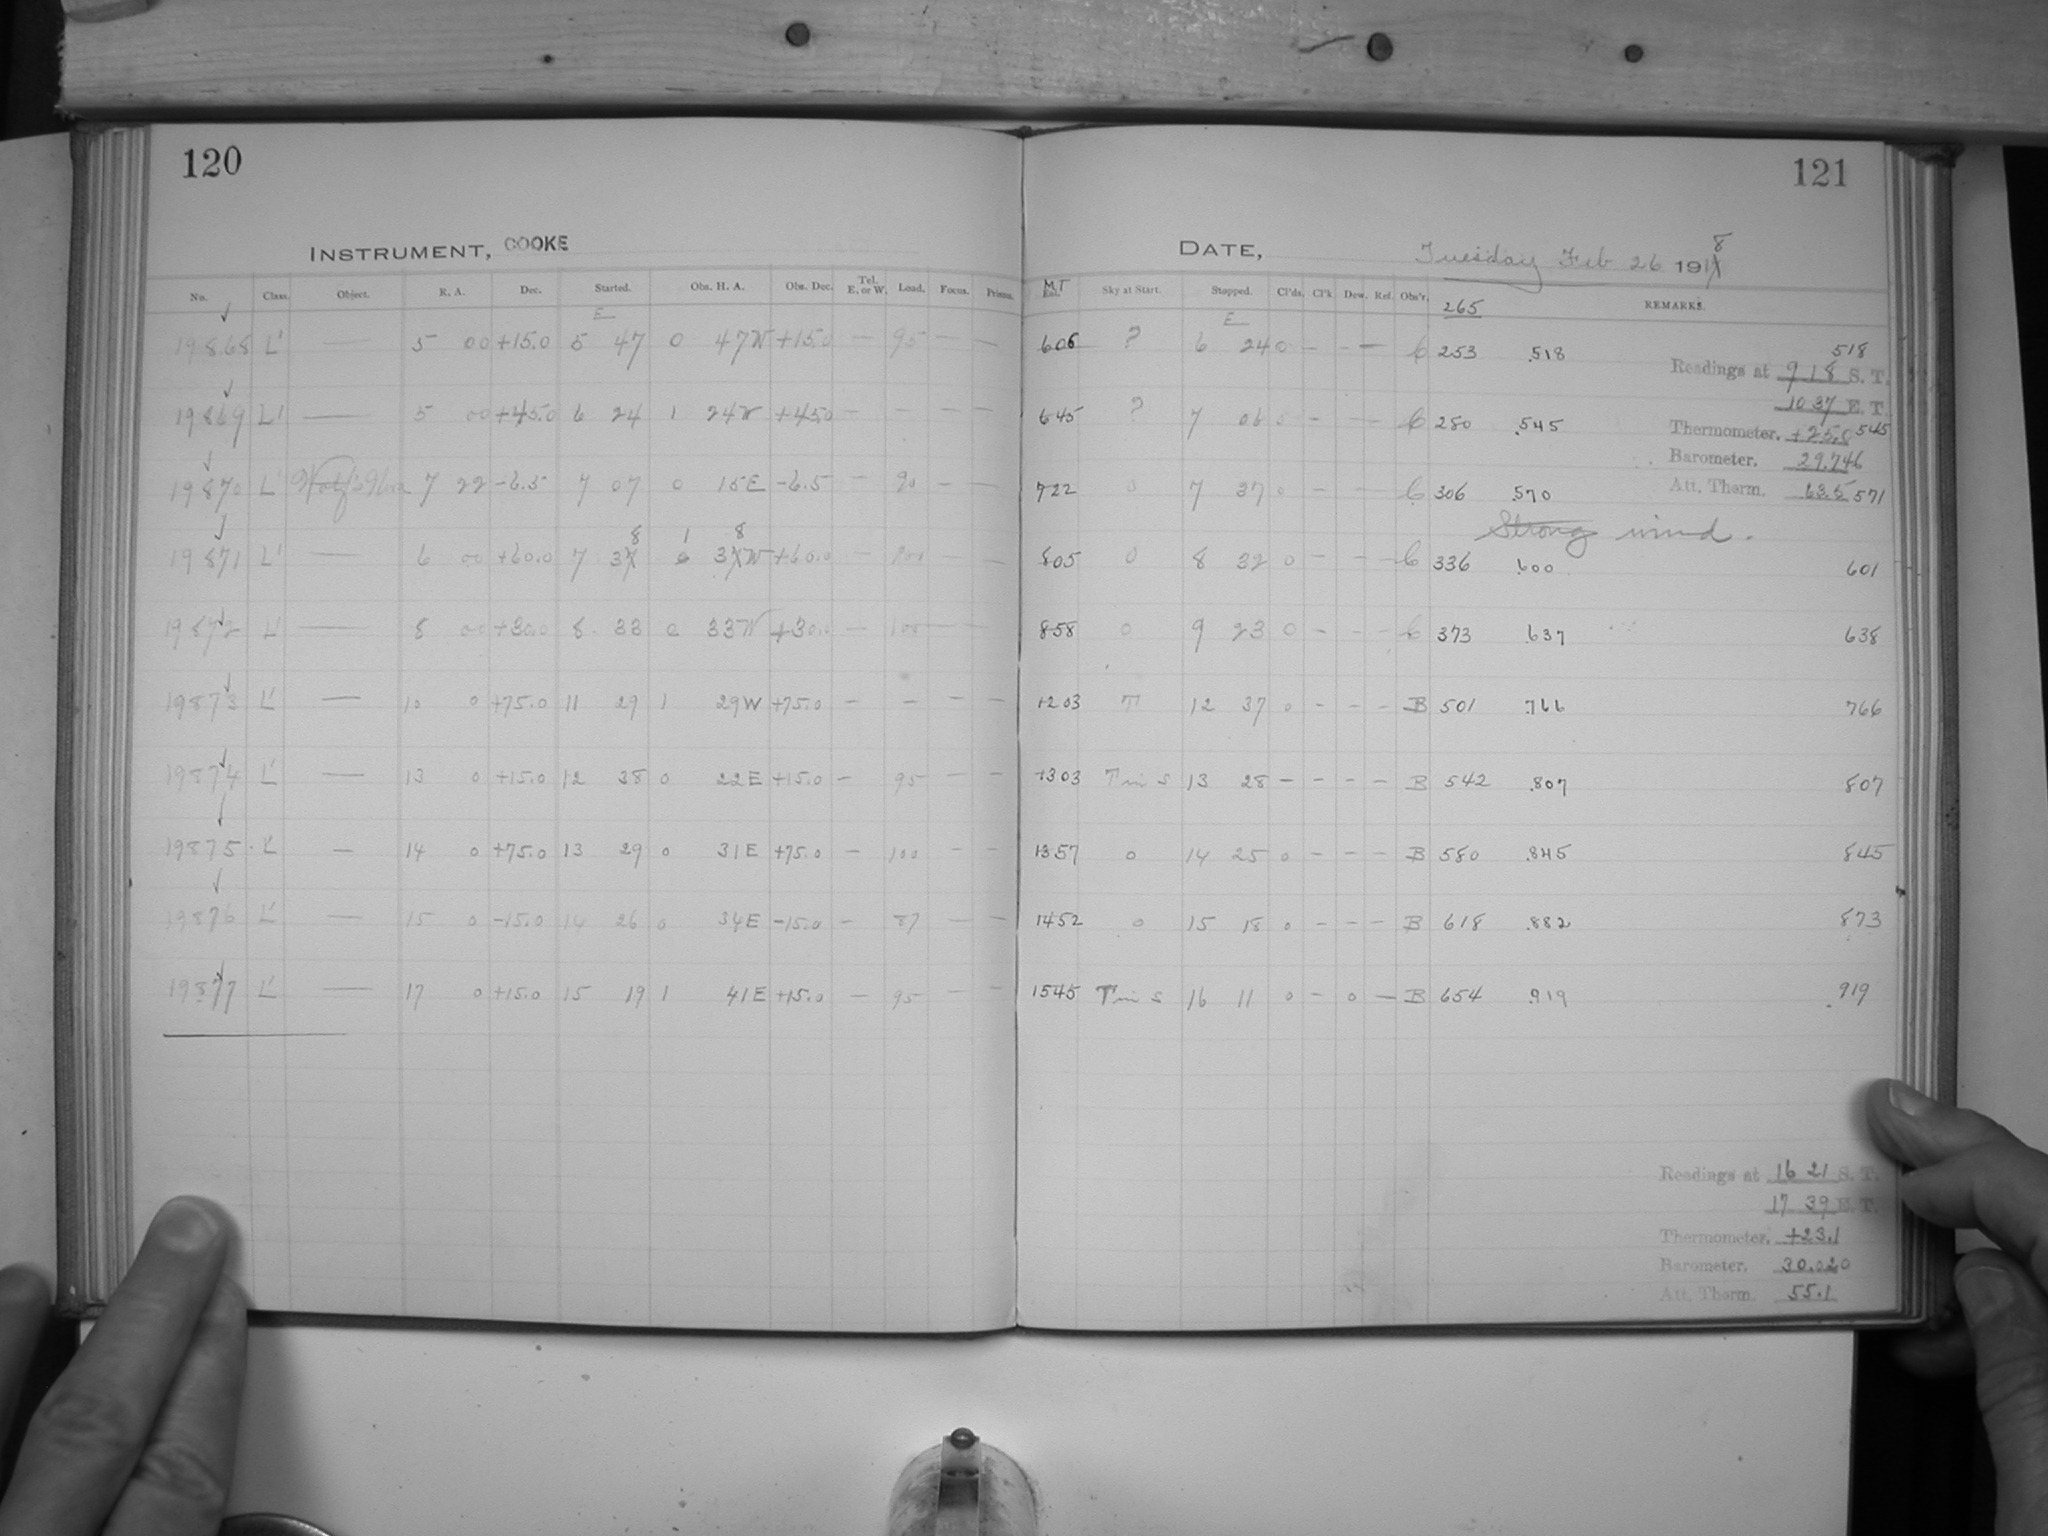 120
INSTRUMENT, COOKE
No. Class. Object. R. A. Dec. Started. Obs. H. A. Obs. Dec. Tel. E. or W. Load. Focus. Prisms.
E
19868 L' — 5 00 +15.0 5 47 0 47W +15.0 — 95 — —
19869 L' — 5 00 +45.0 6 24 1 24W +45.0 — — — —
19870 L' 7 22 -6.5 7 07 0 15E -6.5 — 90 — —
8 1 8
19871 L' — 6 00 +60.0 7 37 0 37W +60.0 — 100 — —
19872 L' — 8 00 +30.0 8 33 0 33W +30.0 — 100 — —
19873 L' — 10 0 +75.0 11 29 1 29W +75.0 — — — —
19874 L' — 13 0 +15.0 12 38 0 22E +15.0 — 95 — —
19875 L' — 14 0 +75.0 13 29 0 31E +75.0 — 100 — —
19876 L' — 15 0 -15.0 14 26 0 34E -15.0 — 87 — —
19877 L' — 17 0 +15.0 15 19 1 41E +15.0 — 95 — —
121
DATE, Tuesday Feb 26 1918
M.T. Sky at Start. Stopped. Cl'ds. Cl'k Dew. Ref. Obs'r. 265 REMARKS.
E
606 ? 6 24 0 - - — C 253 .518 518
Readings at 9 18 S. T.
10 37 E. T.
645 ? 7 06 0 - - - C 280 .545 545
Thermometer. +25.0
Barometer. 29.746
722 0 7 37 0 - - C 306 .570 571
Att. Therm. 63.5
Strong wind.
805 0 8 32 0 - - - C 336 .600 601
858 0 9 23 0 - - - C 373 .637 638
1203 T 12 37 0 - - - B 501 .766 766
1303 T in S 13 28 - - - - B 542 .807 807
1357 0 14 25 0 - - - B 580 .845 845
1452 0 15 18 0 - - - B 618 .882 873
1545 T in S 16 11 0 - 0 — B 654 .919 .919
Readings at 16 21 S. T.
17 39 E. T.
Thermometer. +23.1
Barometer. 30.020
Att. Therm. 55.1